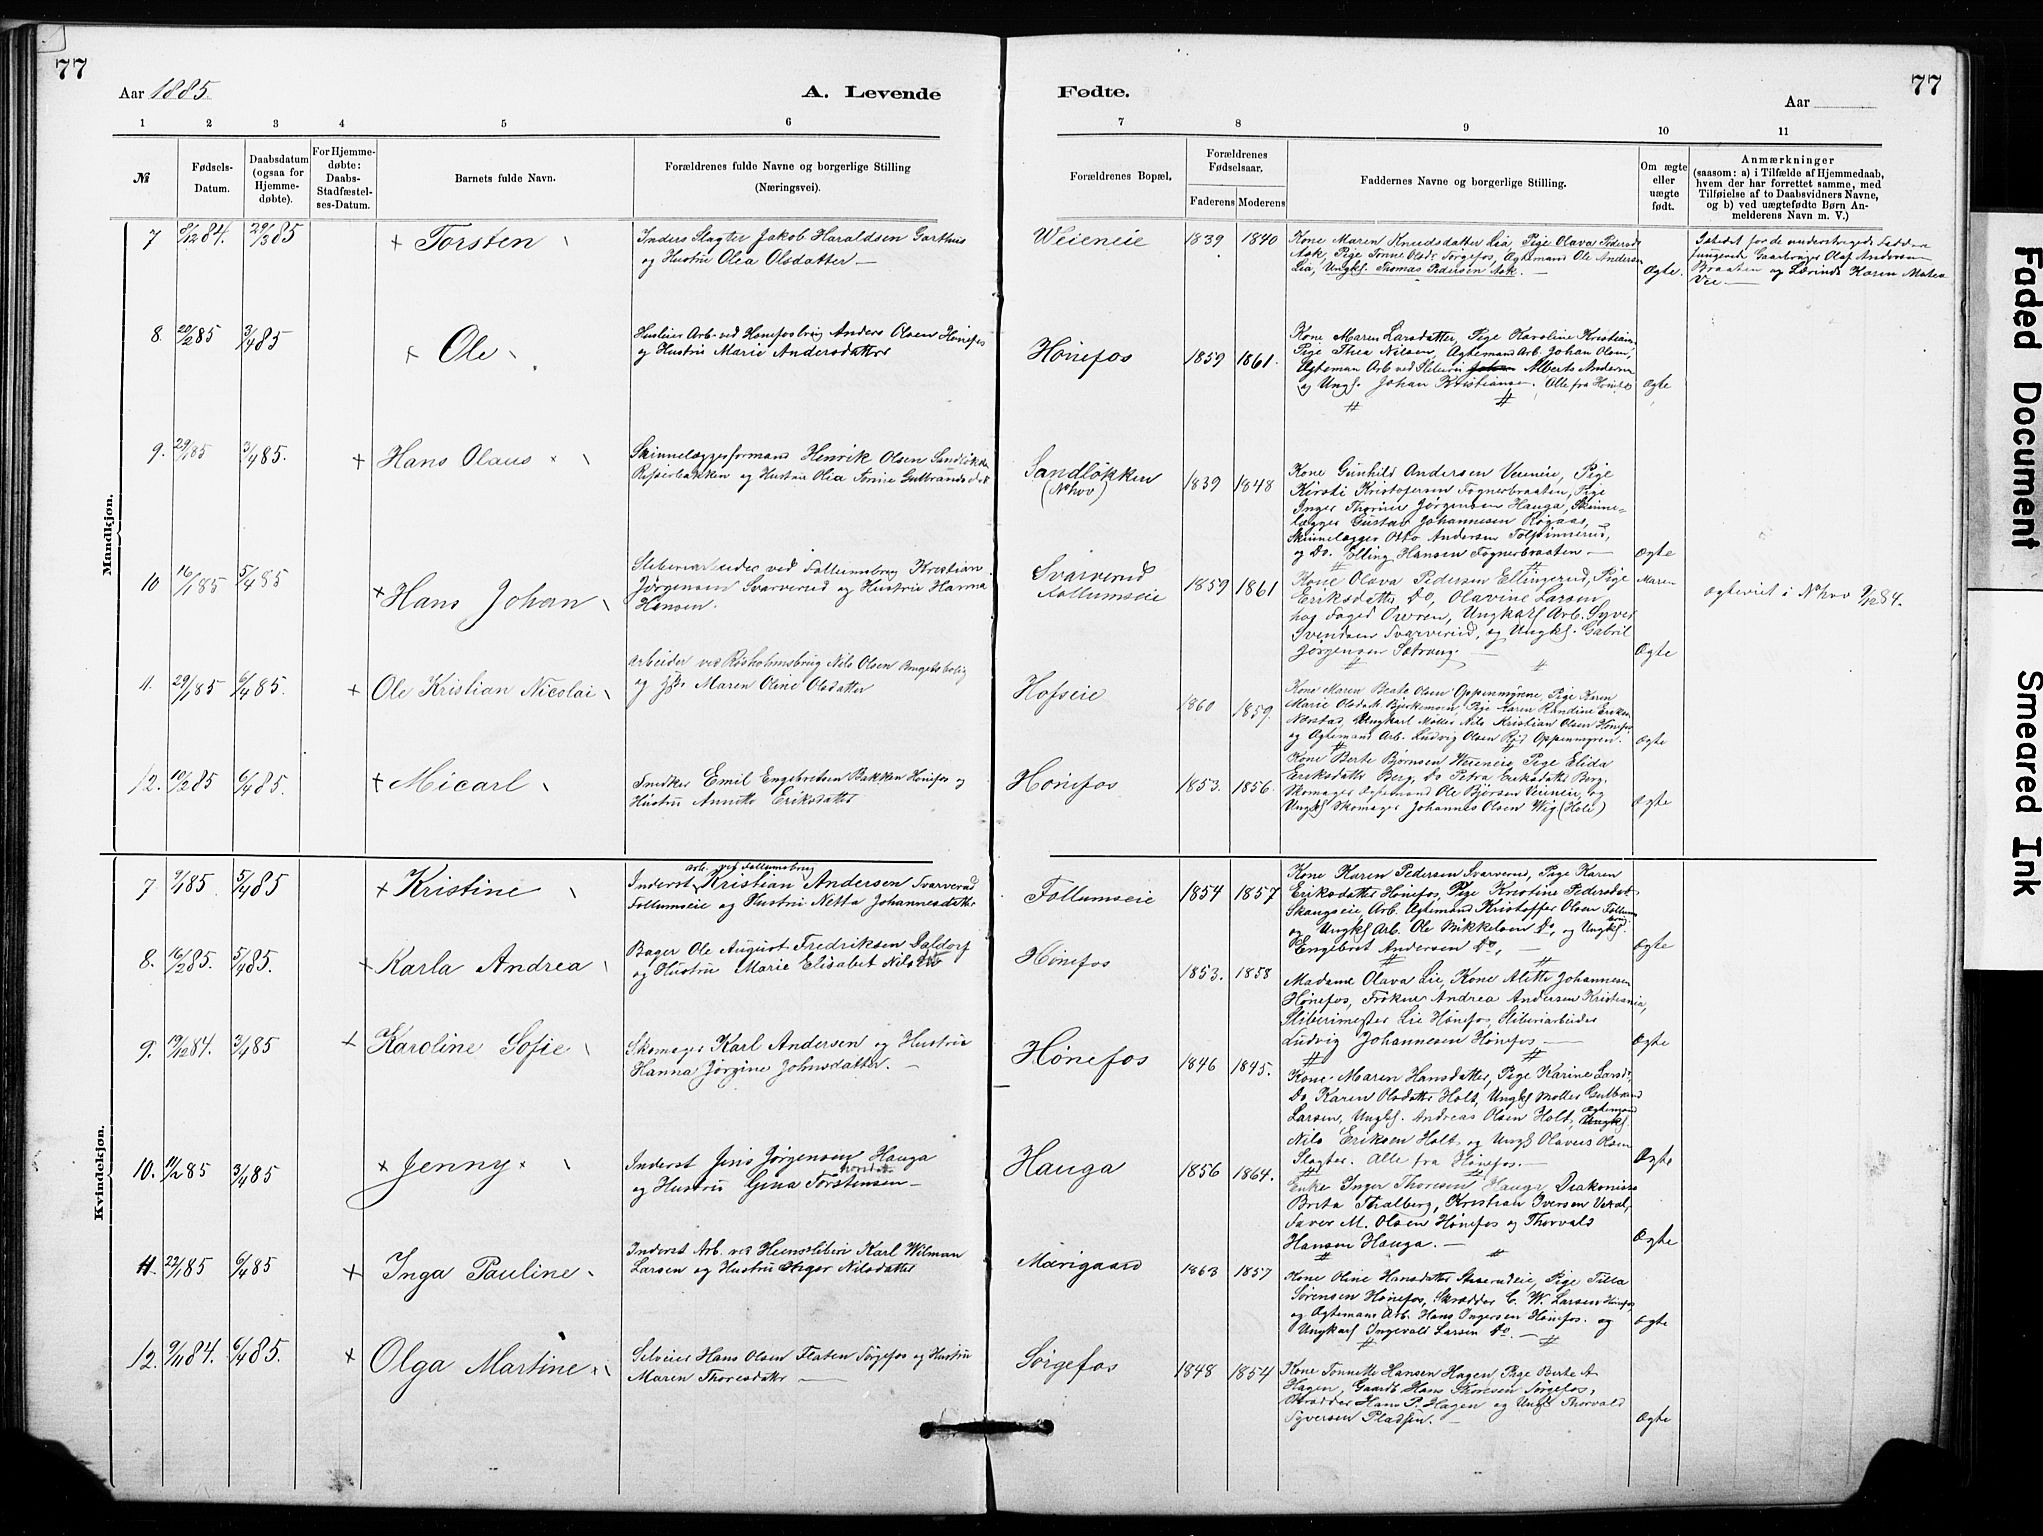 77
Aar 1885.
A. Levende
1 2 3 4 5 6
№
Fødsels-Datum.
Daabsdatum (ogsaa for Hjemmedøbte).
For Hjemmedøbte: Daabs-Stadfæstelses-Datum.
Barnets fulde Navn.
Forældrenes fulde Navne og borgerlige Stilling
(Næringsvei).
Mandkjøn.
7 9/12 84. 29/3 85 + Torsten
Inderst Slagter Jakob Haraldsen Garthus
og Hustru Olea Olsdatter —
8. 20/2 85 3/4 85 + Ole
Husleier Arb. ved Hønefosbrug Anders Olsen Hønefos
og Hustru Marie Andersdatter
9. 29/1 85 3/4 85. + Hans Olaus
Skinnelæggerformand Henrik Olsen Sandløkken
og Hustru Olia Tonne Gulbrandsdat
10 16/1 85 5/4 85 + Hans Johan
Sliberiarbeider ved Follumsbrug Kristian
Jørgensen Svarverud og Hustru Hanna
Hansen.
11. 29/1 85 6/4 85. + Ole Kristian Nicolai
Arbeider ved Røsholmsbrug Nils Olsen Brugetsbolig
og Hstr Maren Oline Olsdatter
12. 10/2 85 6/4 85. + Micarl
Snedker Emil Engebretsen Bakken Hønefos og
Hustru Annette Eriksdatter
Kvindekjøn.
7 9/1 85. 5/4 85 + Kristine
arb. ved Follumsbrug
Inderst Kristian Andersen Svarverud
Follumseie og Hustru Netta Johannesdatter
8. 16/2 85. 5/4 85. + Karla Andrea
Bager Ole August Fredriksen Daldorf
og Hustru Marie Elisabet Nilsdtr
9. 19/12 84. 3/4 85 + Karoline Sofie
Skomager Karl Andersen og Hustru
Hanna Jørgine Johnsdatter. —
10. 11/2 85 3/4 85 + Jenny
Inderst Jens Jørgensen Hauga
og Hustru Gina Torstensen —
11. 22/1 85 6/4 85 + Inga Pauline
Inderst Arb. ved Heensliberi Karl Wilman
Larsen og Hustru Inger Nilsdatter
12. 9/11 84. 6/4 85. + Olga Martine
Selveier Hans Olsen Flaten Sørgefos og Hustru
Maren Thoresdatter —
77
Fødte.
Aar
7 8 9 10 11
Forældrenes Bopæl.
Forældrenes Fødselsaar.
Faderens Moderens
Faddernes Navne og borgerlige Stilling.
Om ægte eller uægte født.
Anmærkninger
(saasom: a) i Tilfælde af Hjemmedaab,
hvem der har forrettet samme, med
Tilføielse af to Daabsvidners Navne,
og b) ved uægtefødte Børn Anmelderens Navn m. V.)
Weieneie 1839 1840
Kone Maren Knudsdatter Lia, Pige Olava Pedersd
Ask, Pige Tonne Olsdr Sørgefos, Ægtemand Ole Andersen
Lia, Ungkf. Thomas Pedersen Ask. —
Ægte.
Istedet for de understregede Faddere
fungerede Gaardbruger Olaf Andersen
Braaten og Lærinde Karen Matea
Vee —
Hønefos 1859 1861.
Kone Maren Larsdatter, Pige Karoline Kristians,
Pige Thea Nilsen, Ægtemand Arb. Johan Olsen,
Ægteman Arb. ved Sliberi Alberts Andersen
og Ungk. Johan Kristiansen. Alle fra Hønefos
Ægte
Sandløkken
(N. hov)
1839 1848
Kone Gunhild Andersen Veieneie, Pige
Kirsti Kristofersen Fognerbraaten, Pige
Inger Thorine Jørgensen Hauga, Skinne-
lægger Gustav Johannesen Røgaas,
Skinnelægger Otto Andersen Tolpinnerud,
og Do. Elling Hansen Fognerbraaten —
Ægte
Svarverud
Follumseie
1859 1861
Kone Olava Pedersen Ellingerud, Pige Maren
Eriksdatter Do, Olavine Larsen
hos Foged Owren, Ungkarl Arb. Syver
Svendsen Svarverud, og Ungk. Gabril
Jørgensen Sætrang. —
Ægte
Ægteviet i N. hov 9/12 84.
Hofseie 1860 1859.
Kone Maren Beate Olsen Oppenmyrene, Pige Karen
Marie Olsdtr. Bjerkemoen, Pige Karen Randine Eriksen
Næstad, Ungkarl Møller Nils Kristian Olsen Hønefos
og Ægtemand Arb. Ludvig Olsen Oppenmyren.
Ægte
Hønefos 1853. 1856.
Kone Berte Bjørnsen Veieneie, Pige Elida
Eriksdatter Berg, Do Petra Eriksdatter Berg.
Skomager Ægtemand Ole Bjørsen Veieneie, og
Ungkf Skomager Johannes Olsen Wig (Hole)
Ægte
Follumseie 1854 1857
Kone Karen Pedersen Svarverud, Pige Karen
Eriksdatter Hønefos, Pige Kristine Pedersdat
Skangseie, Arb. Ægtemand Kristoffer Olsen Follums
brug.
og Ungkf Arb. Ole Mikkelsen Do, og Ungkf.
Engebret Andersen Do, —
Ægte
Hønefos 1853. 1858
Madame Olava Lie, Kone Alette Johannesen
Hønefos, Frøken Andrea Andersen Kristiania,
Sliberimester Lie Hønefos, Sliberiarbeider
Ludvig Johannesen Hønefos —
Ægte
Hønefos 1846 1845.
Kone Maren Hansdatter, Pige Karine Larsdr,
Do Karen Olsdatter Holt, Ungkf Møller Gulbrand
Larsen, Ungkf. Andreas Olsen Holt, Ægtemand
Nils Eriksen Holt og Ungkf Olaves Olsen
Slagter. Alle fra Hønefos. —
Ægte
Hauga 1856 1864.
Enke Inger Thoresen Hauga, Diakonisse
Brita Thalberg, Kristian Iversen Vexal,
Farver M. Olsen Hønefos og Thorvald
Hansen Hauga. —
Ægte
Mærigaard 1863 1857
Kone Oline Hansdatter, Pige Tilla
Sørensen Hønefos, Skrædder C. W. Larsen Hønefos,
og Ægtemand Arb. Hans Ingersen Hønefos. og
Ungkarl Ingevald Larsen Do. —
Ægte
Sørgefos 1848 1854
Kone Tonnette Hansen Hagen, Pige Berte A
Hagen, Gaardb. Hans Thoresen Sørgefos,
Skrædder Hans P. Hagen og Ungk Thorvald
Syversen Pladsen. —
Ægte
Faded Document
Smeared Ink